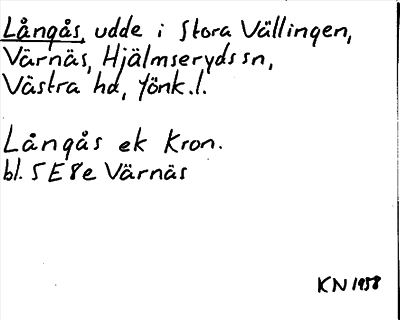 Långås, udde i Stora Vällingen,
Värnäs, Hjälmseryds sn,
Västra hd, Jönk.l.
Långås ek Kron.
bl. 5E8e Värnäs
KN 1958